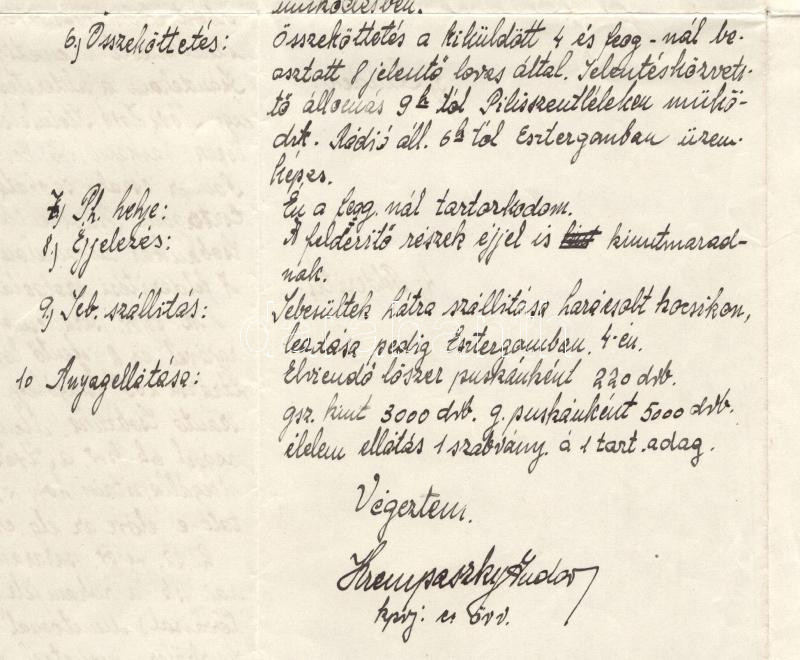 működésben.
6.) Összeköttetés: Összeköttetés a kiküldött 4 és fogg-nál be-
osztott 8 jelentő lovas által. Jelentésközvetí-
tő állomás 9h tól Pilisszentléleken műkö-
dik. Rádió áll. 6h tól Esztergomban üzem-
képes.
7.) Ph. helye: Én a fogg. nál tartozkodom.
8.) Éjjelezés: A felderítő részek éjjel is kinntmarad-
nak.
9.) Seb. szállítás: Sebesültek hátra szállítása harácsolt kocsikon,
leadása pedig Esztergomban. 4-én.
10 Anyagellátása: Elviendő lőszer puskánként 220 drb.
gsz. kint 3000 drb. g. puskánként 5000 drb.
élelem ellátás 1 szabvány. á 1 tart. adag.
Végeztem.
Krempaszky Andor
kpvj. őrv.